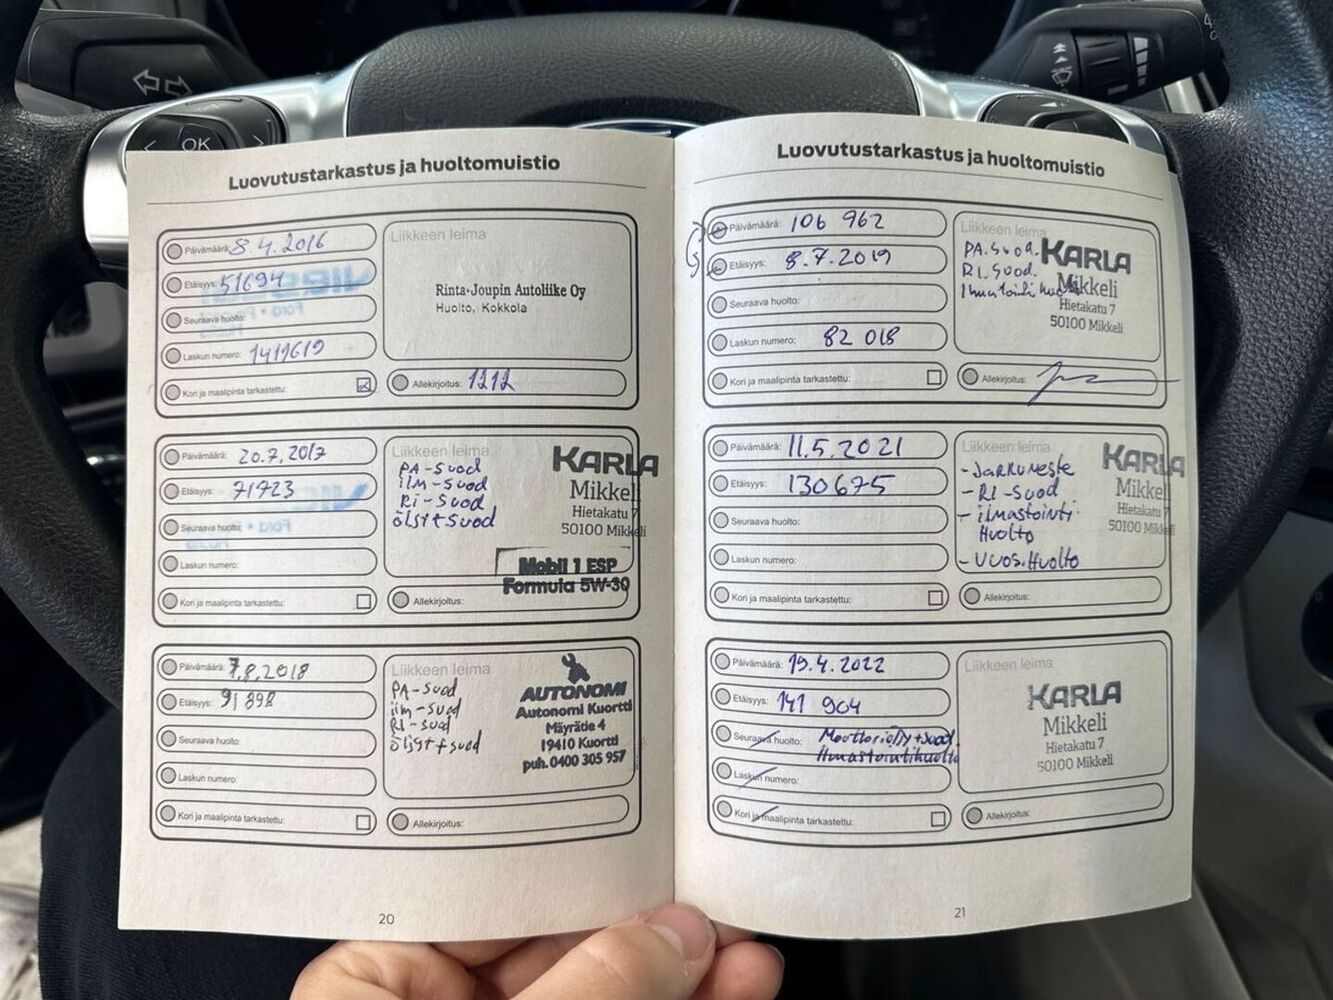 OK
Luovutustarkastus ja huoltomuistio
Päivämäärä: 8.4.2016
Etäisyys: 51694
Seuraava huolto:
Laskun numero: 1411619
Kori ja maalipinta tarkastettu:
Liikkeen leima
Rinta-Joupin Autoliike Oy
Huolto, Kokkola
Allekirjoitus: 1212
Päivämäärä: 20.7.2017
Etäisyys: 71723
Seuraava huolto:
Laskun numero:
Kori ja maalipinta tarkastettu:
Liikkeen leima
PA-suod
ilm-suod
Ri-suod
öljyt+suod
KARLA
Mikkeli
Hietakatu 7
50100 Mikkeli
Mobil 1 ESP
Formula 5W-30
Allekirjoitus:
Päivämäärä: 7.8.2018
Etäisyys: 91 898
Seuraava huolto:
Laskun numero:
Kori ja maalipinta tarkastettu:
Liikkeen leima
PA-suod
ilm-suod
Ri-suod
öljyt+suod
AUTONOMI
Autonomi Kuortti
Mäyrätie 4
19410 Kuortti
puh. 0400 305 957
Allekirjoitus:
20
Luovutustarkastus ja huoltomuistio
Päivämäärä: 106 962
Etäisyys: 8.7.2019
Seuraava huolto:
Laskun numero: 82 018
Kori ja maalipinta tarkastettu:
Liikkeen leima
PA.suod.
RI.suod.
KARLA
Mikkeli
Hietakatu 7
50100 Mikkeli
Allekirjoitus:
Päivämäärä: 11.5.2021
Etäisyys: 130675
Seuraava huolto:
Laskun numero:
Kori ja maalipinta tarkastettu:
Liikkeen leima
- Jarruneste
- RI-suod
- ilmastointi
Huolto
- Vuos.Huolto
KARLA
Mikkeli
Hietakatu 7
50100 Mikkeli
Allekirjoitus:
Päivämäärä: 19.4.2022
Etäisyys: 141 904
Seuraava huolto: Moottoriöljy+suod.
Ilmastointihuolto
Laskun numero:
Kori ja maalipinta tarkastettu:
Liikkeen leima
KARLA
Mikkeli
Hietakatu 7
50100 Mikkeli
Allekirjoitus:
21